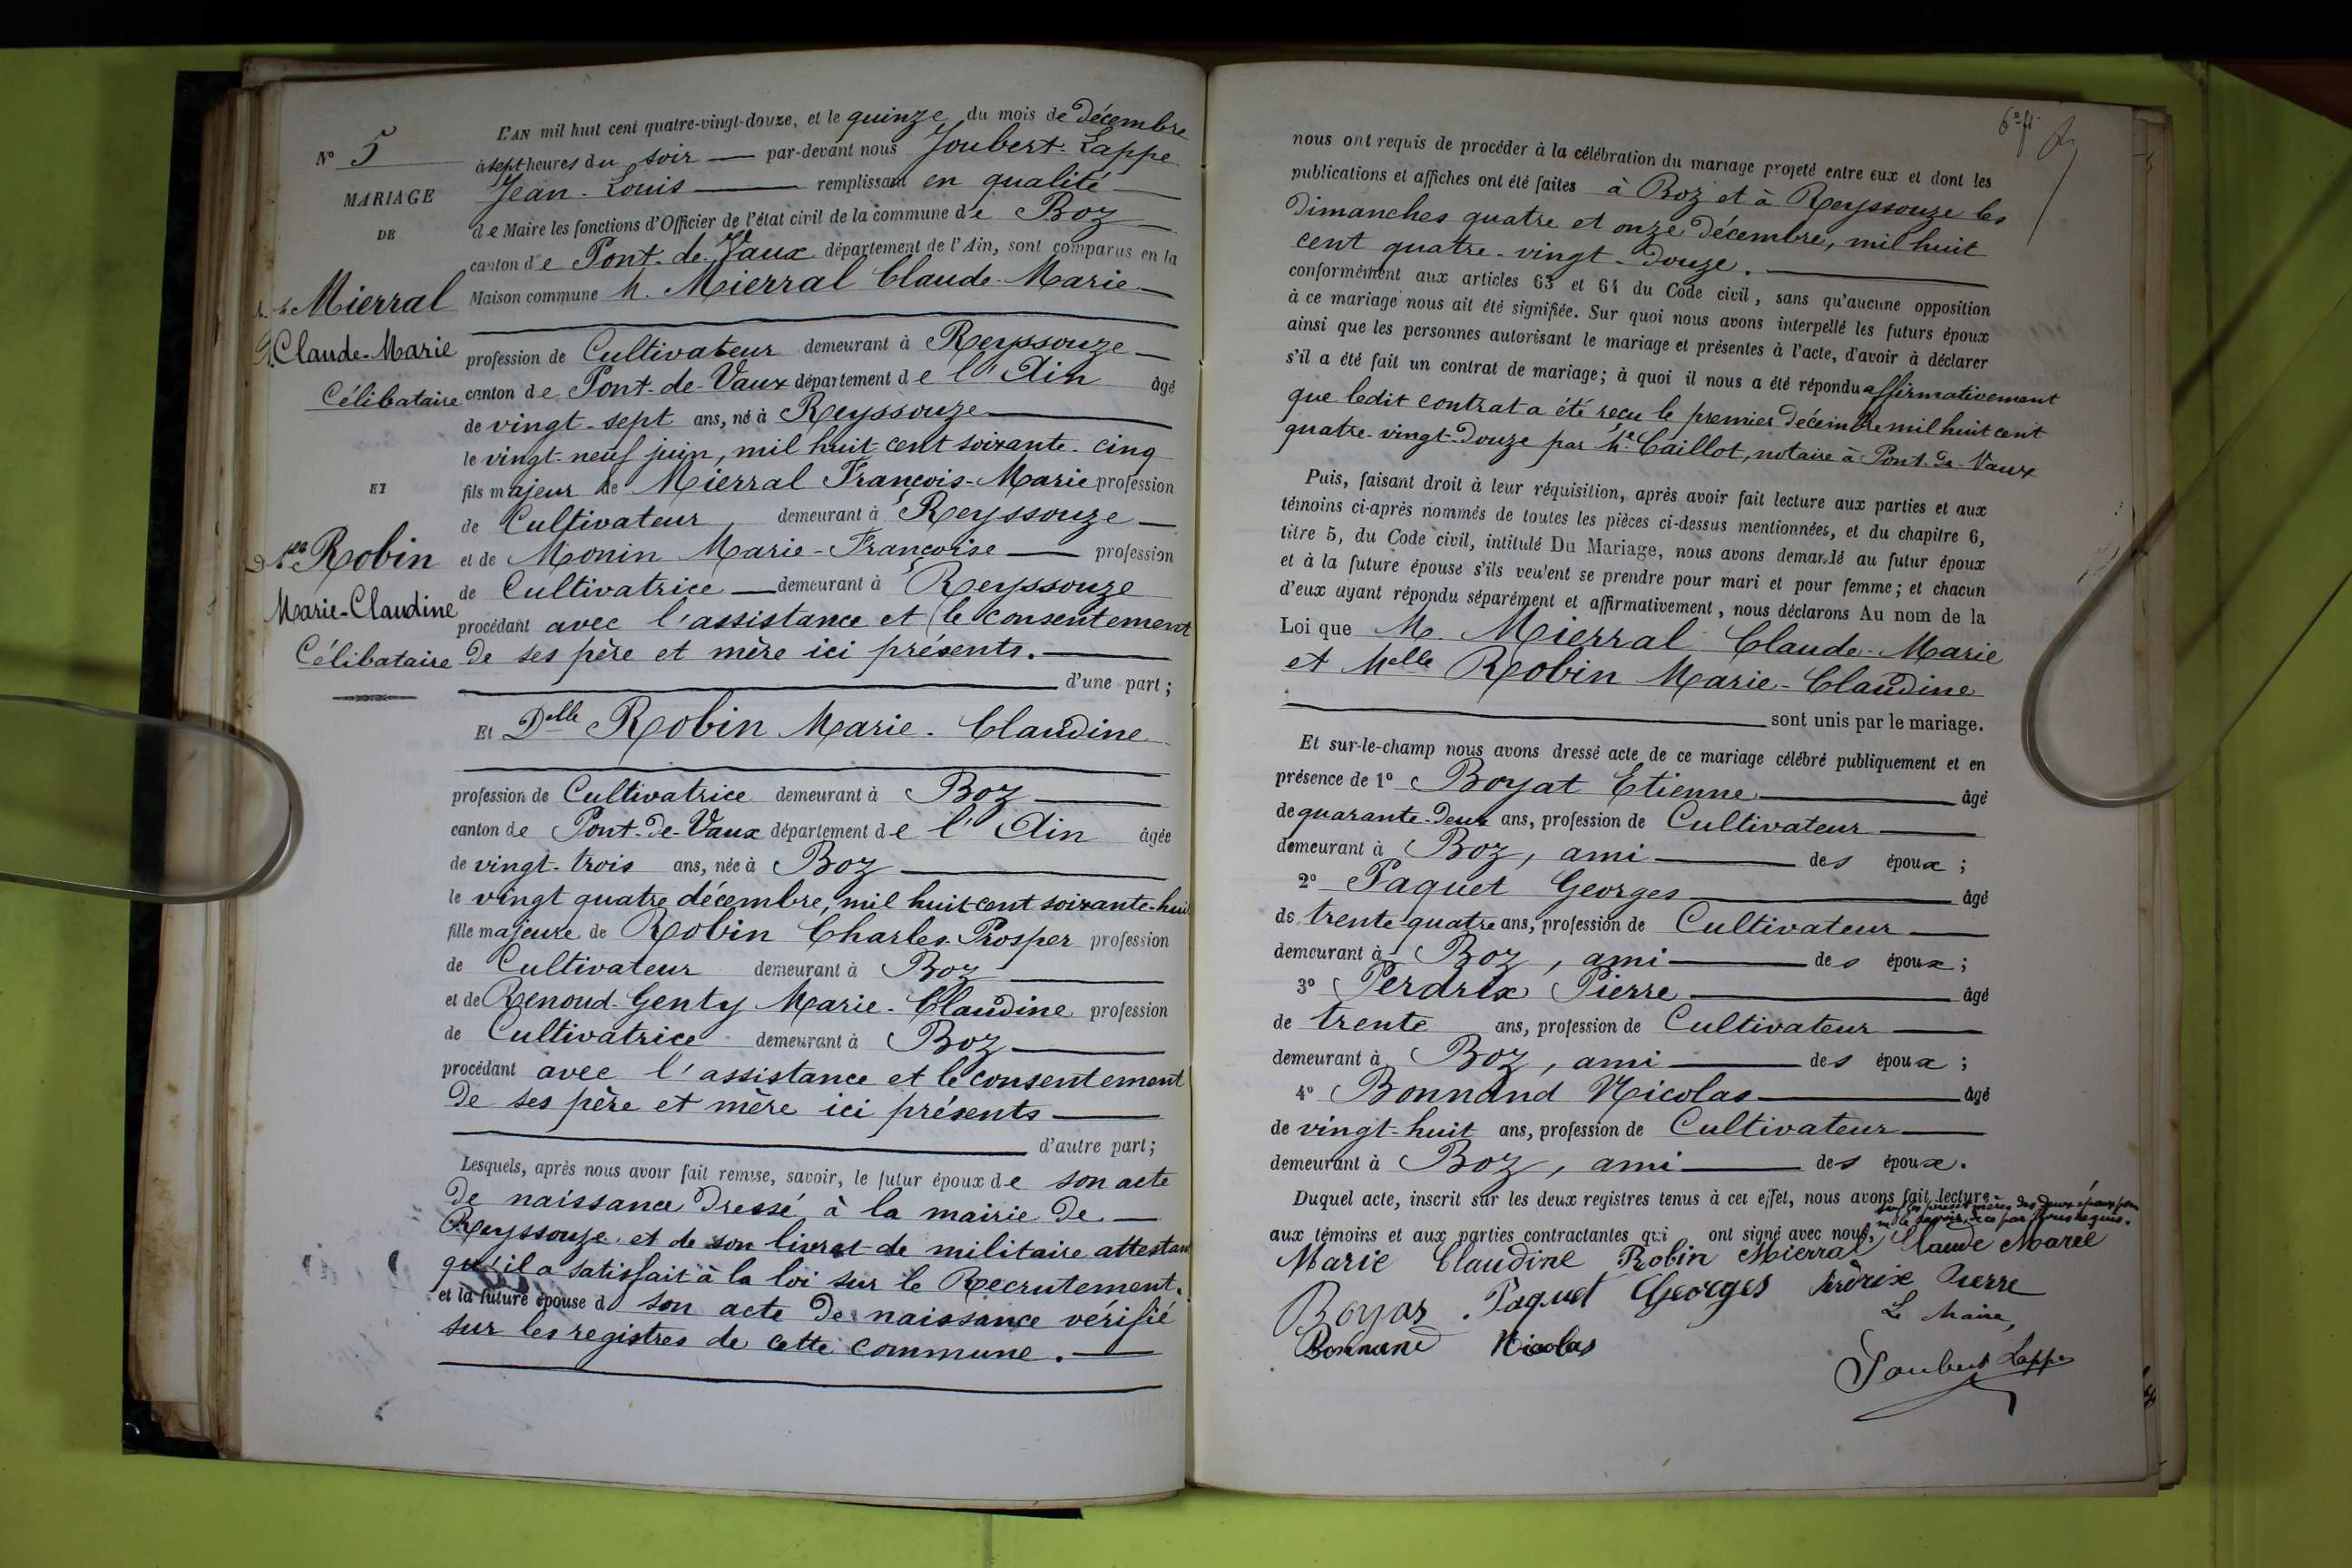 N° 5
MARIAGE
DE
Mierral
Claude-Marie
Célibataire
ET
Dlle Robin
Marie-Claudine
Célibataire
L'AN mil huit cent quatre-vingt-douze, et le quinze du mois de Décembre
à sept heures du soir — par-devant nous Joubert-Lappe
Jean-Louis — remplissant en qualité
de Maire les fonctions d'Officier de l'état civil de la commune de Boz
canton de Pont-de-Vaux département de l'Ain, sont comparus en la
Maison commune M. Mierral Claude-Marie
profession de Cultivateur demeurant à Reyssouze
canton de Pont-de-Vaux département de l'Ain âgé
de vingt-sept ans, né à Reyssouze
le vingt-neuf juin, mil huit cent soixante-cinq
fils majeur de Mierral François-Marie profession
de Cultivateur, demeurant à Reyssouze
et de Monin Marie-Françoise — profession
de Cultivatrice — demeurant à Reyssouze
procédant avec l'assistance et le consentement
de ses père et mère ici présents.
d'une part;
Et Delle Robin Marie-Claudine
profession de Cultivatrice demeurant à Boz
canton de Pont-de-Vaux département de l'Ain âgée
de vingt-trois ans, née à Boz
le vingt quatre décembre, mil huit cent soixante-huit
fille majeure de Robin Charles-Prosper profession
de Cultivateur demeurant à Boz
et de Renoud-Genty Marie-Claudine profession
de Cultivatrice demeurant à Boz
procédant avec l'assistance et le consentement
de ses père et mère ici présents
d'autre part;
Lesquels, après nous avoir fait remise, savoir, le futur époux de son acte
de naissance dressé à la mairie de
Reyssouze et de son livret de militaire attestant
qu'il a satisfait à la loi sur le Recrutement.
et la future épouse d son acte de naissance vérifié
sur les registres de cette commune.
6e ft
nous ont requis de procéder à la célébration du mariage projeté entre eux et dont les
publications et affiches ont été faites à Boz et à Reyssouze les
Dimanches quatre et onze Décembre, mil huit
cent quatre-vingt-douze.
conformément aux articles 63 et 64 du Code civil, sans qu'aucune opposition
à ce mariage nous ait été signifiée. Sur quoi nous avons interpellé les futurs époux
ainsi que les personnes autorisant le mariage et présentes à l'acte, d'avoir à déclarer
s'il a été fait un contrat de mariage; à quoi il nous a été répondu affirmativement
que ledit contrat a été reçu le premier Décembre mil huit cent
quatre-vingt-douze par Me Caillot, notaire à Pont-de-Vaux
Puis, faisant droit à leur réquisition, après avoir fait lecture aux parties et aux
témoins ci-après nommés de toutes les pièces ci-dessus mentionnées, et du chapitre 6,
titre 5, du Code civil, intitulé Du Mariage, nous avons demandé au futur époux
et à la future épouse s'ils veulent se prendre pour mari et pour femme; et chacun
d'eux ayant répondu séparément et affirmativement, nous déclarons Au nom de la
Loi que M. Mierral Claude-Marie
et Melle Robin Marie-Claudine
sont unis par le mariage.
Et sur-le-champ nous avons dressé acte de ce mariage célébré publiquement et en
présence de 1° Boyat Etienne âgé
de quarante-deux ans, profession de Cultivateur
demeurant à Boz, ami des époux;
2° Paquet Georges âgé
de trente-quatre ans, profession de Cultivateur
demeurant à Boz, ami des époux;
3° Perdrix Pierre âgé
de trente ans, profession de Cultivateur
demeurant à Boz, ami des époux;
4° Bonnand Nicolas âgé
de vingt-huit ans, profession de Cultivateur
demeurant à Boz, ami des époux.
Duquel acte, inscrit sur les deux registres tenus à cet effet, nous avons fait lecture
mères des deux époux pour
ne le savoir de ce par nous requis.
aux témoins et aux parties contractantes qui ont signé avec nous,
Marie Claudine Robin Mierral Claude Marie
Boyat. Paquet Georges Perdrix Pierre
Bonnand Nicolas
Le Maire,
Joubert Lappe